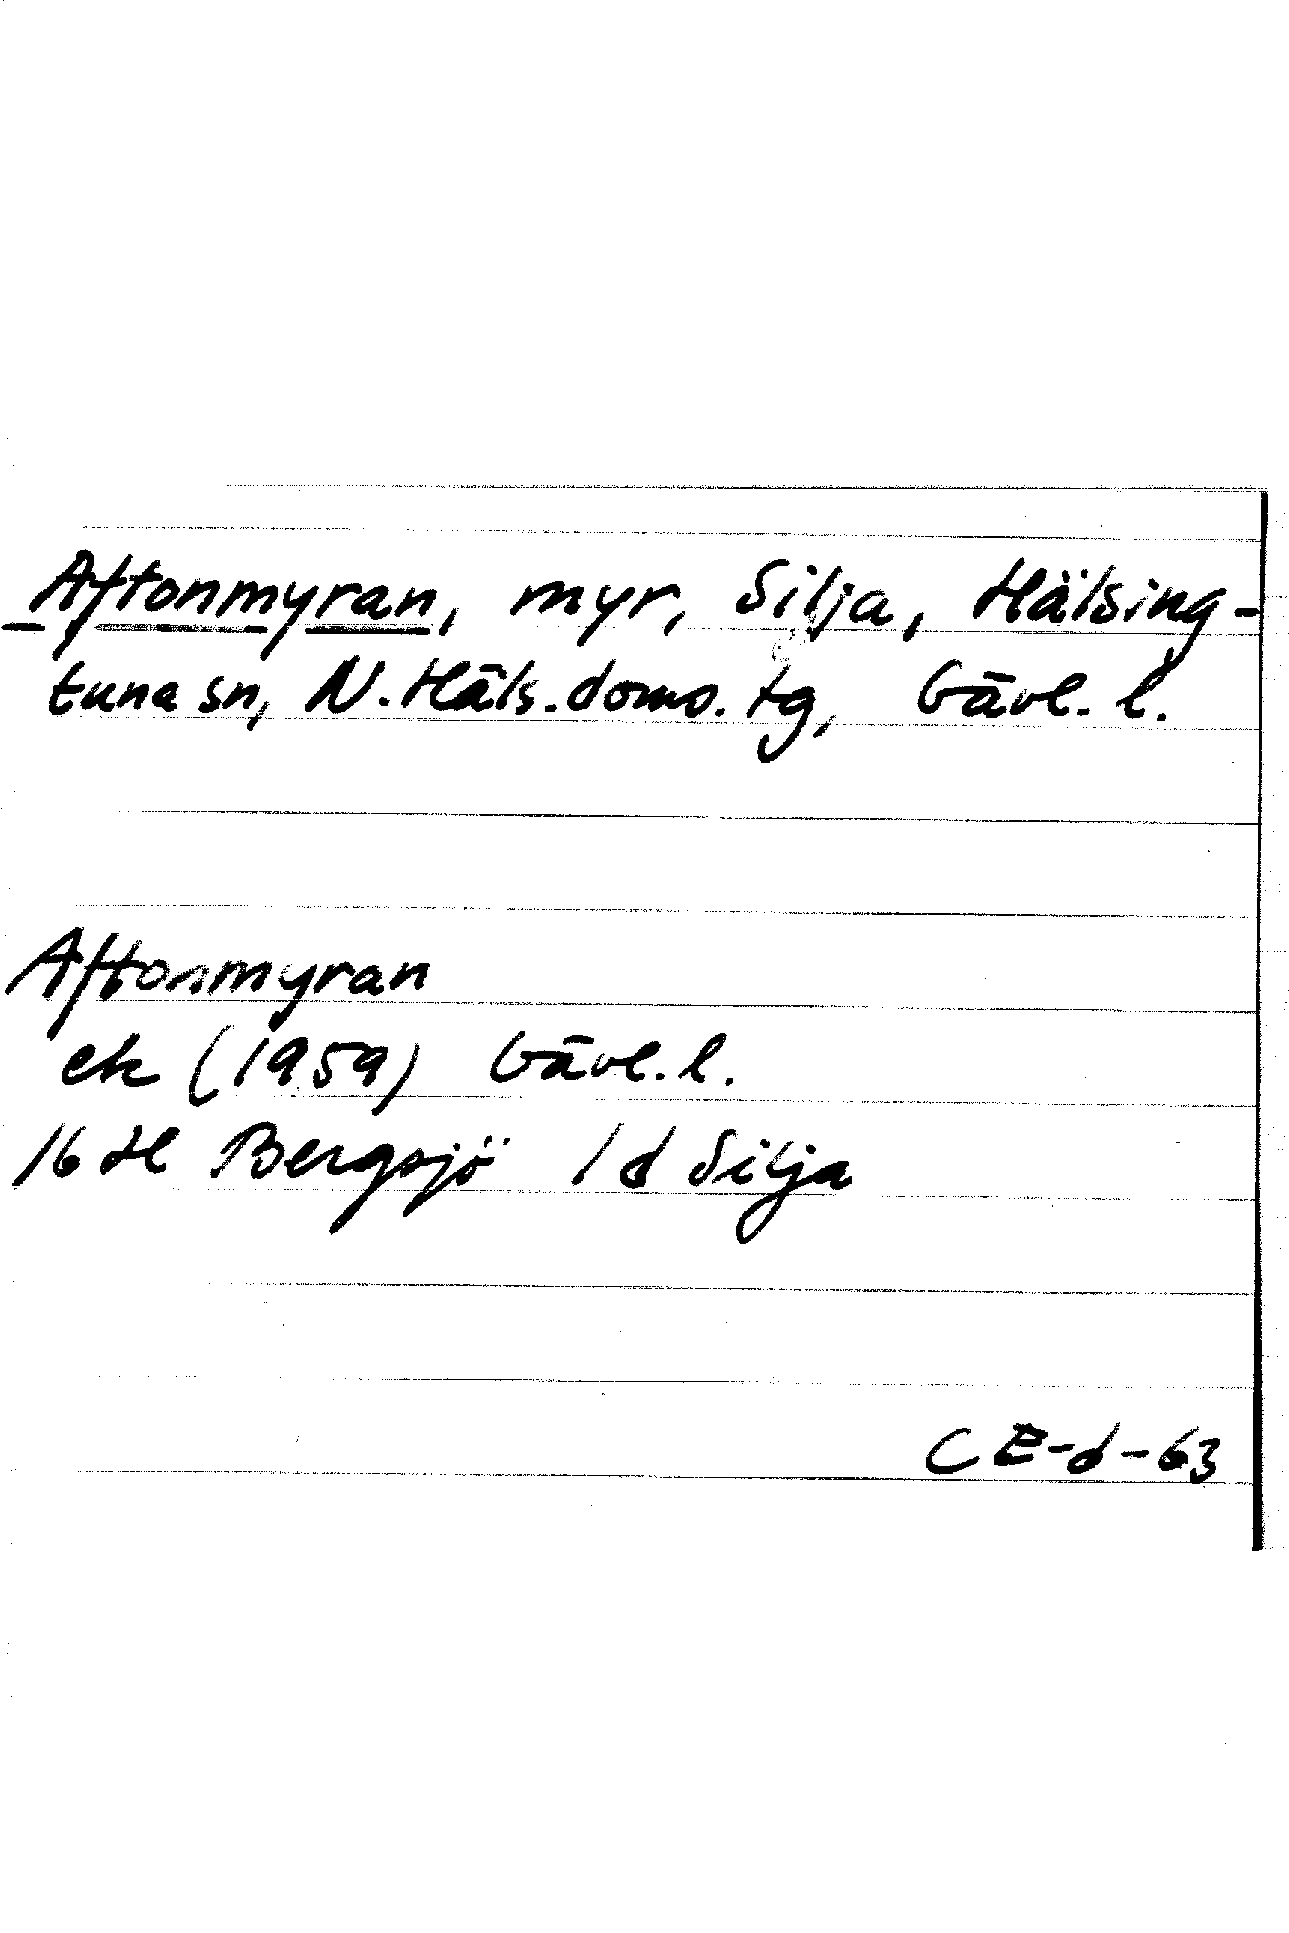 Aftonmyran, myr, Silja, Hälsing-
tuna sn, N. Häls. doms. tg, Gävl. l.
Aftonmyran
ek (1959) Gävl. l.
16 H Bergsjö 1 d Silja
CE-d-63